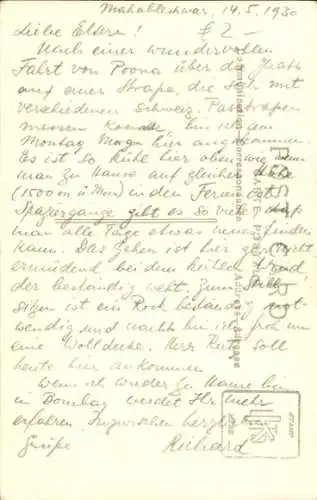 Mahableshwar, 14.5.1930
Liebe Eltern! £ 2 –
Nach einer wundervollen
Fahrt von Poona über die Ghats
auf einer Strasse, die sich mit
verschiedenen schweiz. Passstrassen
messen konnte, bin ich am
Montag Morgen hier angekommen.
Es ist so kühl hier oben wie wenn
man zu Hause auf gleicher Höhe
(1500 m ü Meer) in den Ferien ist.
Spaziergänge gibt es so viele dass
man alle Tage etwas neues finden
kann. Das Gehen ist hier gar nicht
ermüdend bei dem kühlen Wind
der beständig weht. Zum Still-
sitzen ist ein Rock beständig not-
wendig und nachts bin ich froh um
eine Wolldecke. Herr soll
heute hier ankommen.
Wenn ich wieder zu Hause bin
in Bombay werdet Ihr mehr
erfahren. Inzwischen herzliche
Grüsse Richard
POST CARD
STAMP
HERE